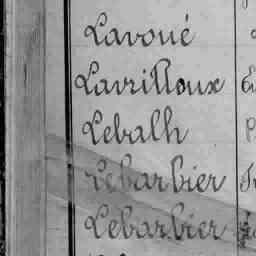 Lavoué
Lavrilloux
Lebalh
Lebarbier
Lebarbier